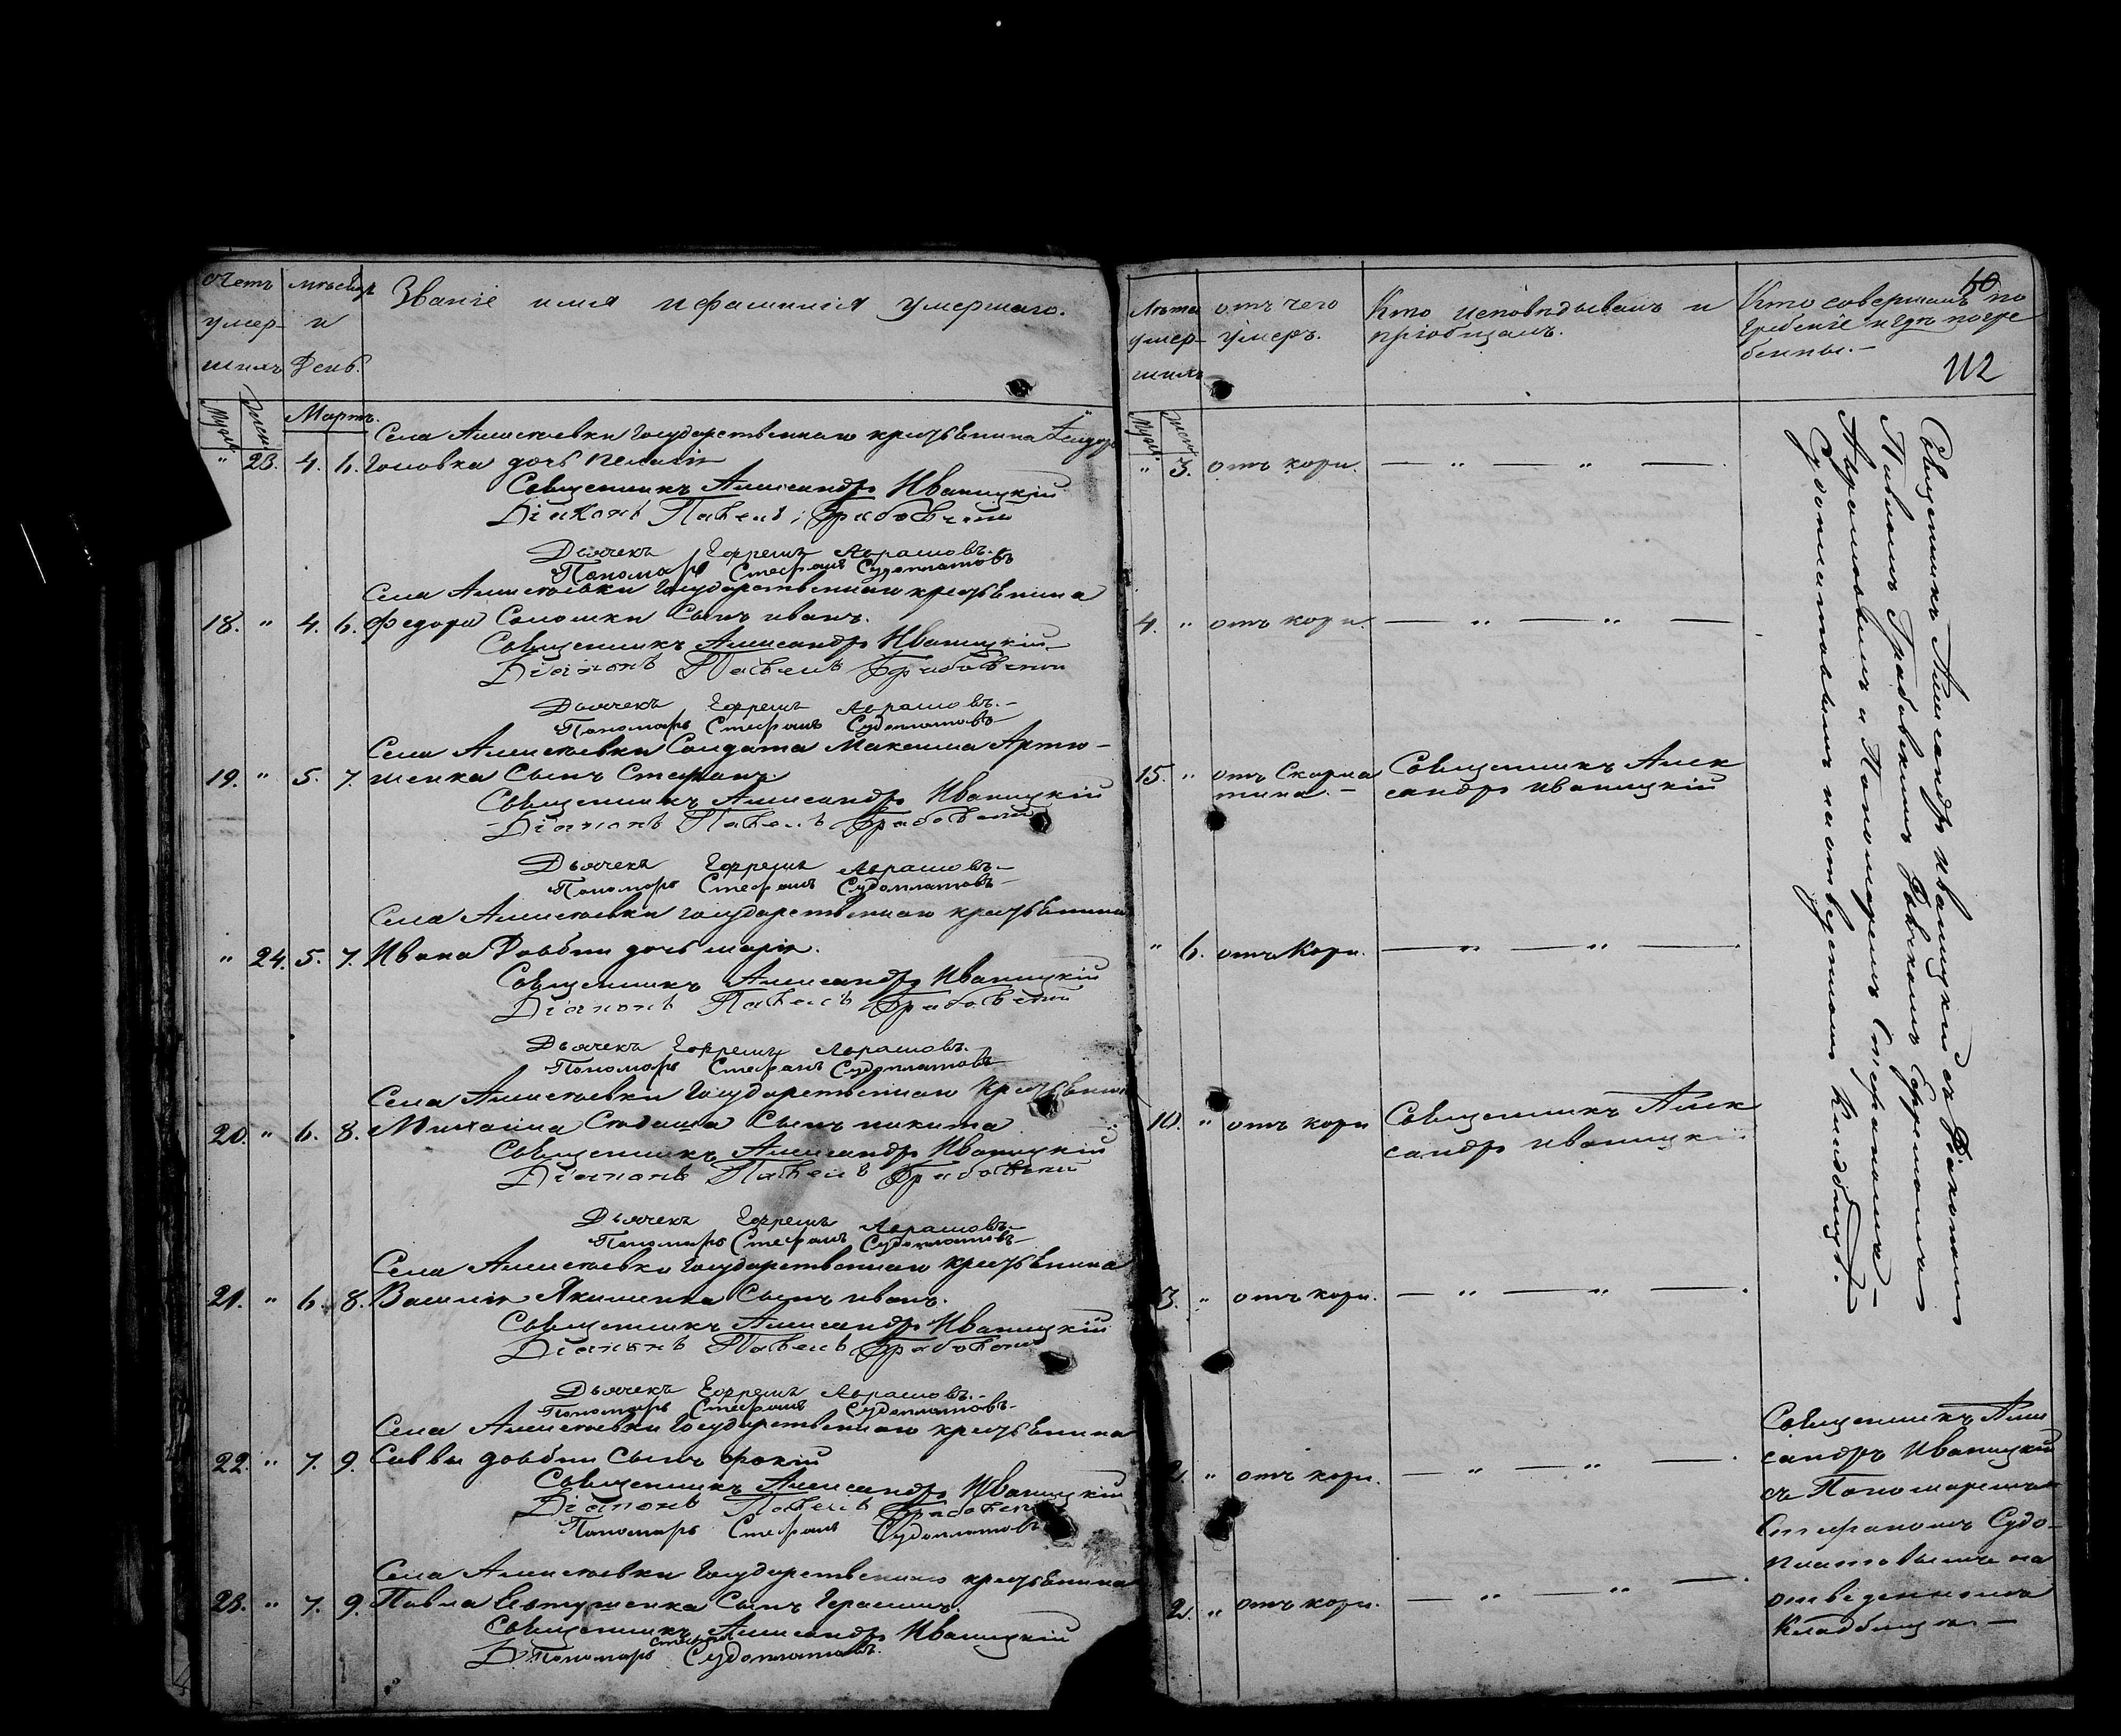 счетъ
умер-
шихъ
мѣсяцъ
и
день.
Званіе имя и фамилія умершаго.
Муж.
Женс.
Мартъ.
Села Алексѣевки Государственнаго крестьянина
" 23. 4. 6. Головка дочь Пелагія
Священникъ Александръ Иваницкій
Діаконъ Павелъ Грабовскій
Дьячекъ Ефремъ Аврамовъ.
Пономарь Стефанъ Судоплатовъ
Села Алексѣевки Государственнаго крестьянина
18. " 4. 6. Федора Солошки Сынъ иванъ.
Священникъ Александръ Иваницкій
Діаконъ Павелъ Грабовскій
Дьячекъ Ефремъ Аврамовъ.-
Пономарь Стефанъ Судоплатовъ
Села Алексѣевки Солдата Максима Артю-
19. " 5. 7. шенка Сынъ Стефанъ.
Священникъ Александръ Иваницкій
Діаконъ Павелъ Грабовскій
Дьячекъ Ефремъ Аврамовъ-
Пономарь Стефанъ Судоплатовъ-
Села Алексѣевки государственнаго крестьянина
" 24. 5. 7. Ивана Довбни дочь марія.
Священникъ Александръ Иваницкій
Діаконъ Павелъ Грабовскій
Дьячекъ Ефремъ Аврамовъ.
Пономарь Стефанъ Судоплатовъ
Села Алексѣевки Государственнаго крестьянина
20. " 6. 8. Михаила Сынъ никита
Священникъ Александръ Иваницкій
Діаконъ Павелъ Грабовскій
Дьячекъ Ефремъ Аврамовъ-
Пономарь Стефанъ Судоплатовъ-
Села Алексѣевки Государственнаго крестьянина
21. " 6. 8. Василія Якименка Сынъ иванъ.
Священникъ Александръ Иваницкій
Діаконъ Павелъ Грабовскій
Дьячекъ Ефремъ Аврамовъ.-
Пономарь Стефанъ Судоплатовъ-
Села Алексѣевки Государственнаго крестьянина
22. " 7. 9. Саввы довбни Сынъ фокій
Священникъ Александръ Иваницкій
Діаконъ Павелъ Грабовскій
Пономарь Стефанъ Судоплатовъ
Села Алексѣевки Государственнаго крестьянина
23. " 7. 9. Павла Евтушенка Сынъ Герасимъ.
Священникъ Александръ Иваницкій
Пономарь Стефанъ Судоплатовъ.
Лѣта
умер-
шихъ
отъ чего
умеръ.
Кто исповѣдывалъ и
пріобщалъ.
Кто совершалъ по
гребеніе и гдѣ погре
бенны.-
50
112
Муж.
Женс.
" 3. отъ кори. — " — " —
4. " отъ кори. — " — " —
15. " отъ Скарла
тина.-
Священникъ Алек
сандръ иваницкій
" 6. отъ Кори. — " — " —
10. " отъ кори
Священникъ Алек
сандръ иваницкій
3. " отъ кори. — " — " —
2. " отъ кори. — " — " —
2. " отъ кори. — " — " —
Священникъ Александръ иваницкій съ Діакономъ
Павломъ Грабовскимъ Дьячкомъ Ефремомъ
Аврамовымъ и Пономаремъ Стефаномъ-
Судоплатовымъ на отведенномъ Кладбищѣ.
Священникъ Алек
сандръ Иваницкій
съ Пономаремъ
Стефаномъ Судо-
платовымъ на
отведенномъ
Кладбищѣ.—